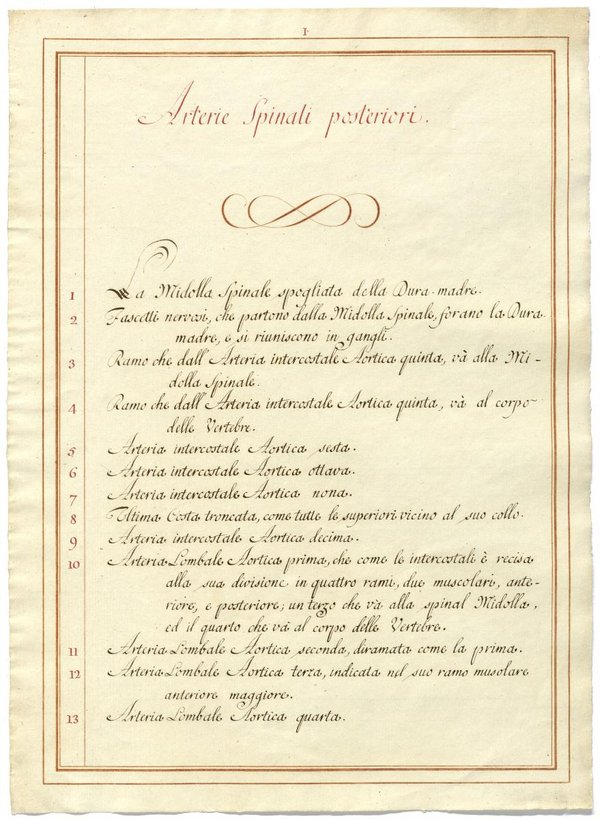 1
Arterie Spinali posteriori.
1 La Midolla Spinale spogliata della Dura-madre.
2 Fascetti nervosi, che partono dalla Midolla Spinale, forano la Dura
madre, e si riuniscono in gangli.
3 Ramo che dall'Arteria intercostale Aortica quinta, và alla Mi-
dolla Spinale.
4 Ramo che dall'Arteria intercostale Aortica quinta, và al corpo
delle Vertebre.
5 Arteria intercostale Aortica sesta.
6 Arteria intercostale Aortica ottava.
7 Arteria intercostale Aortica nona.
8 Ultima Costa troncata, come tutte le superiori vicino al suo collo.
9 Arteria intercostale Aortica decima.
10 Arteria Lombale Aortica prima, che come le intercostali è recisa
alla sua divisione in quattro rami, due muscolari, ante-
riore, e posteriore; un terzo che và alla spinal Midolla,
ed il quarto che và al corpo delle Vertebre.
11 Arteria Lombale Aortica seconda, diramata come la prima.
12 Arteria Lombale Aortica terza, indicata nel suo ramo musolare
anteriore maggiore.
13 Arteria Lombale Aortica quarta.